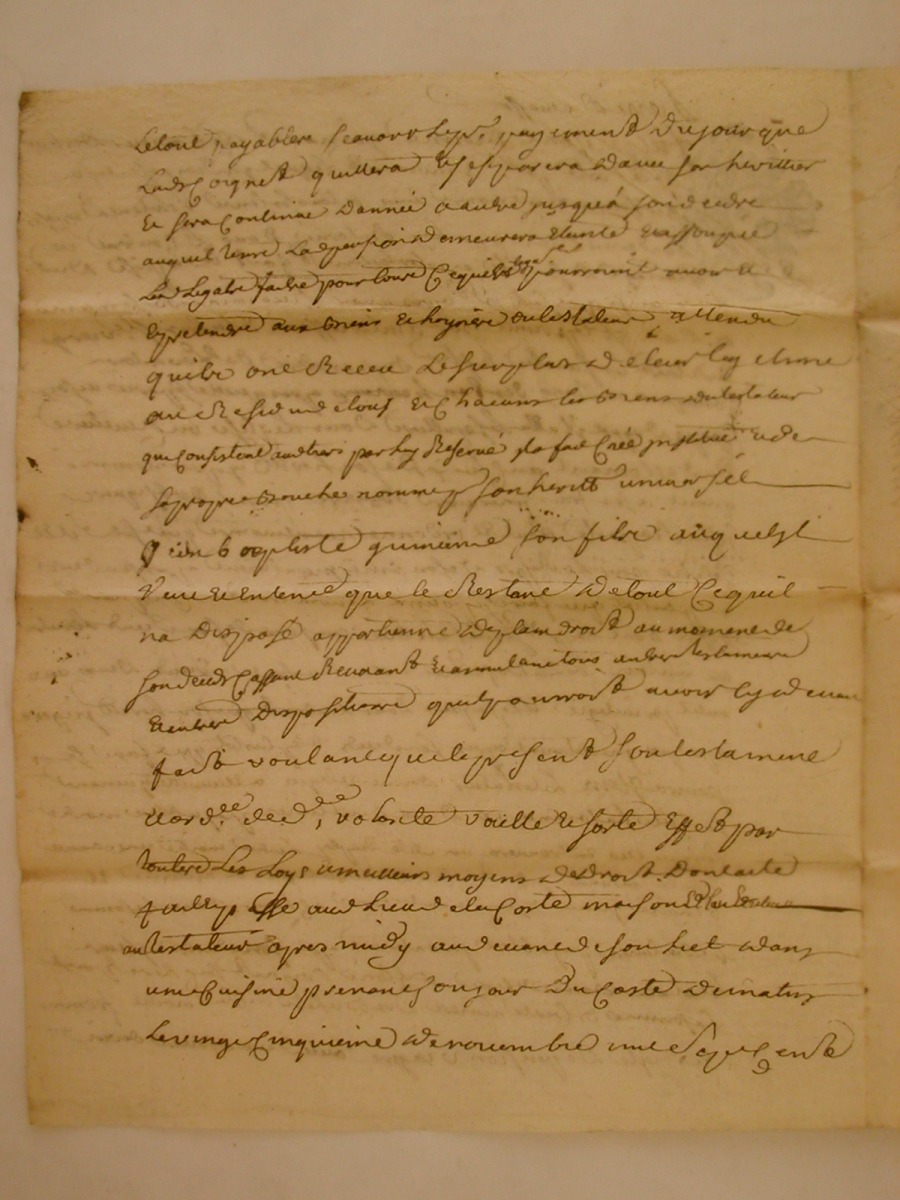 Letout payablere scavoir le p.r payement du jour que
Lad. Coignet quittera et separera davec son heritier
Et sera Continué dannée a autre jusqua son decedz
auquel tems Lad pension demeurera Etinte
Lesd Legats faits pour tout Ce quils pourroint avoir et
Et pretendre aux biens et hoyrie du testateur attendu
quils ont Receu Le surplus de leur legitime
au Residu de tous Et Chacuns les biens du testateur
qui Consistent par luy Reservé Il a fait Créé institué et de
sa propre bouche nommé son heritt universel
Jean baptiste son fils auquel Il
Veut Et Entend que le Restant de tout Ce quil
na Disposé appartienne de plain droit au moment de
son decedz Cassant Revocant Et annulant tous autres testaments
Et autres Dispositions quil pourroit avoir Cy devant
faits voulant que le present son testament
Et ord.ee de d.re volonté vaille Et sorte Effect par
toutes Les Loys et meilleurs moyens de droit. Dont acte
fait et passé aud Lieu de la Coste maison
du testateur apres midy au devant de son Lict dans
une Cuisine prenant son jour Du Costé De matin
Le vingt Cinquieme de novembre mil sept Cents